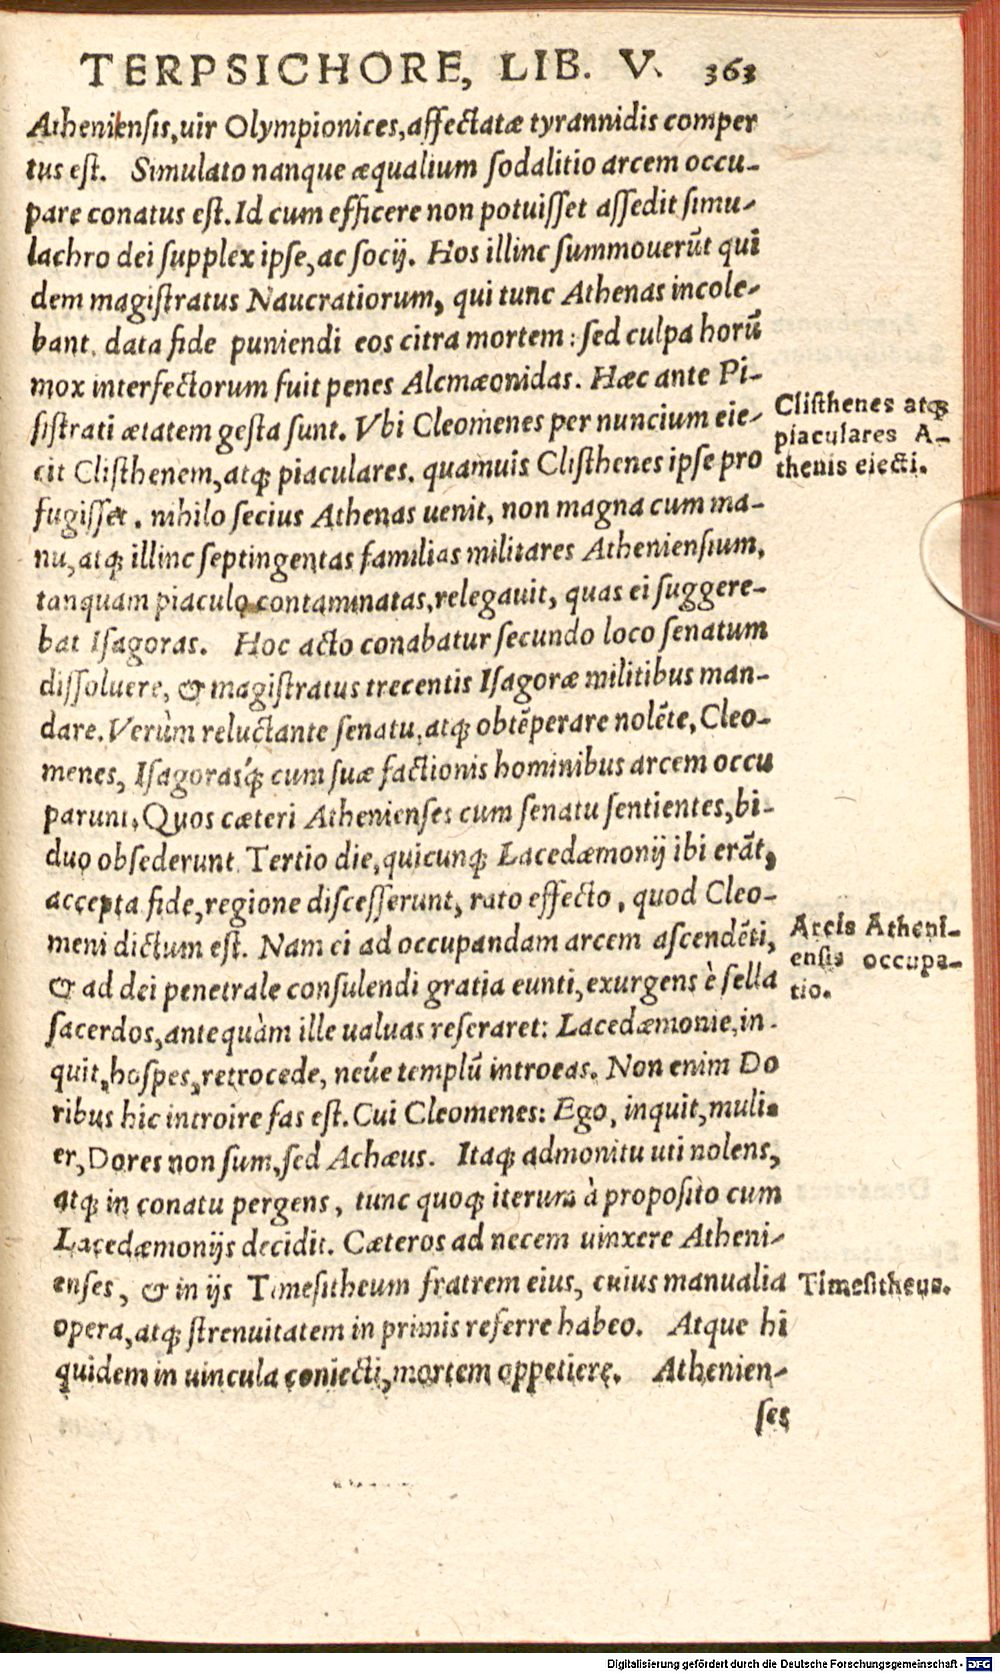 TERPSICHORE, LIB. V. 363
Atheniensis, uir Olympionices, affectatæ tyrannidis comper
tus est. Simulato nanque æqualium sodalitio arcem occu-
pare conatus est. Id cum efficere non potuisset assedit simu-
lachro dei supplex ipse, ac socij. Hos illinc summouerũt qui
dem magistratus Naucratiorum, qui tunc Athenas incole-
bant, data fide puniendi eos citra mortem: sed culpa horũ
mox interfectorum fuit penes Alcmæonidas. Hæc ante Pi-
sistrati ætatem gesta sunt. Vbi Cleomenes per nuncium eie-
cit Clisthenem, atq; piaculares. quamuis Clisthenes ipse pro
fugisset. nihilo secius Athenas uenit, non magna cum ma-
nu, atq; illinc septingentas familias militares Atheniensium,
tanquam piaculo contaminatas, relegauit, quas ei suggere-
bat Isagoras. Hoc acto conabatur secundo loco senatum
dissoluere, & magistratus trecentis Isagoræ militibus man-
dare. Verùm reluctante senatu, atq; obtẽperare nolẽte, Cleo-
menes, Isagorasq́; cum suæ factionis hominibus arcem occu
parunt. Quos cæteri Athenienses cum senatu sentientes, bi-
duo obsederunt. Tertio die, quicunq; Lacedæmonij ibi erãt,
accepta fide, regione discesserunt, rato effecto, quod Cleo-
meni dictum est. Nam ei ad occupandam arcem ascendẽti,
& ad dei penetrale consulendi gratia eunti, exurgens è sella
sacerdos, antequàm ille ualuas reseraret: Lacedæmonie, in-
quit, hospes, retrocede, neúe templũ introeas. Non enim Do
ribus hic introire fas est. Cui Cleomenes: Ego, inquit, muli-
er, Dores non sum, sed Achæus. Itaq; admonitu uti nolens,
atq; in conatu pergens, tunc quoq; iterum à proposito cum
Lacedæmonijs decidit. Cæteros ad necem uinxere Atheni-
enses, & in ijs Timesitheum fratrem eius, cuius manualia
opera, atq; strenuitatem in primis referre habeo. Atque hi
quidem in uincula coniecti, mortem oppetiere. Athenien-
ses
Clisthenes atq;
piaculares A-
thenis eiecti.
Arcis Atheni-
ensis occupa-
tio.
Timesitheus.
Digitalisierung gefördert durch die Deutsche Forschungsgemeinschaft - DFG